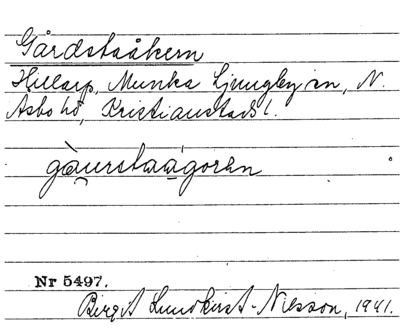 Gårdstaåkern
Hillarp, Munka Ljungby sn, N.
Åsbo hd, Kristianstads l.
gàurstaágorən
Nr 5497.
Birgit Lundkvist-Nilsson, 1941.